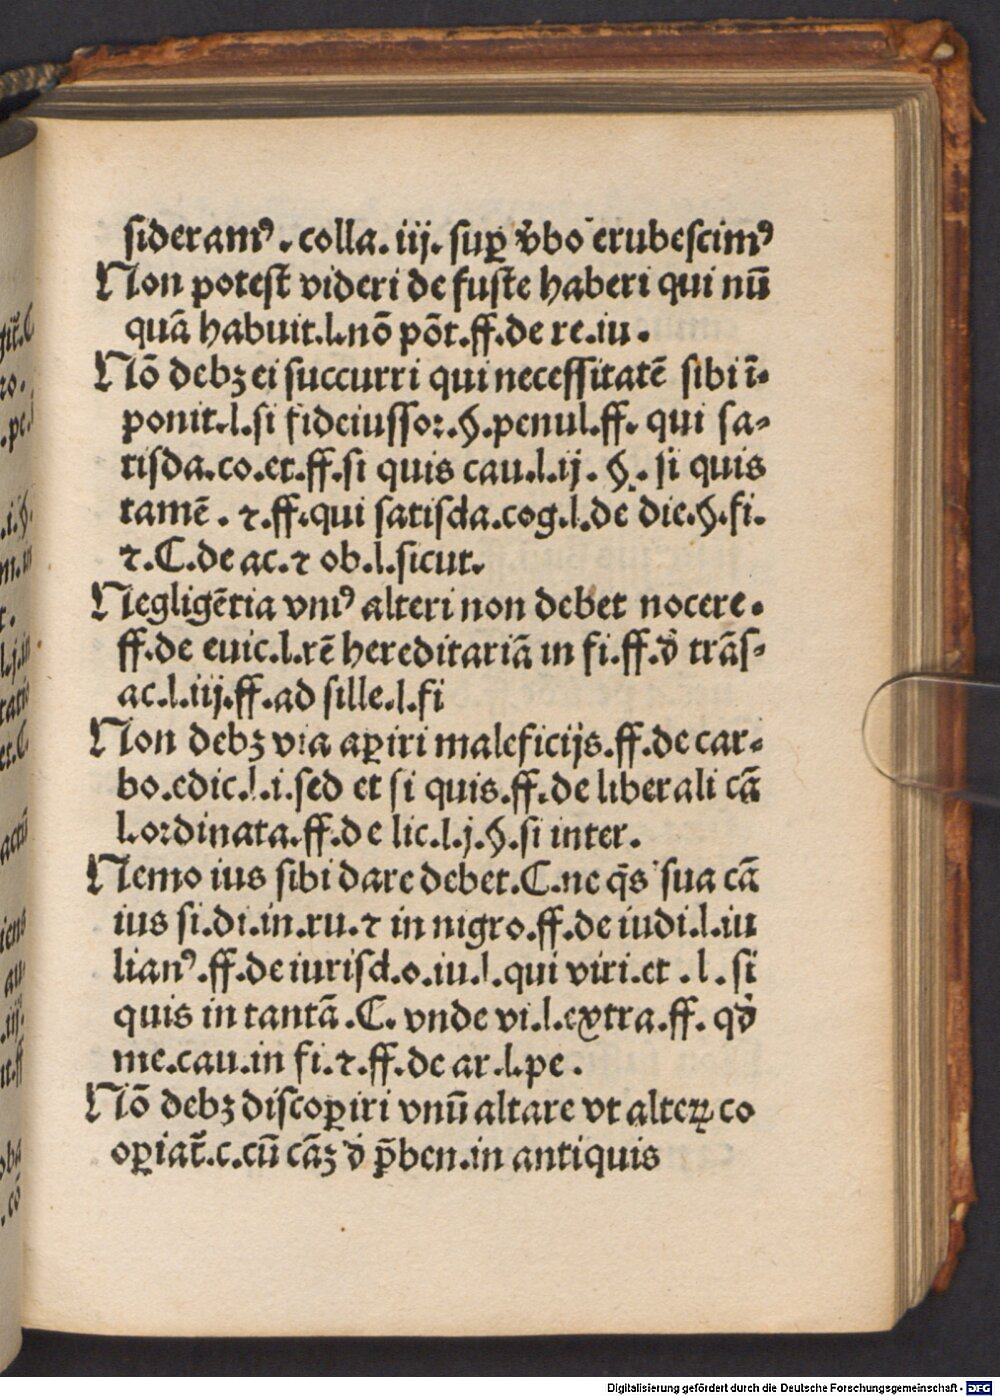 sideramꝰ. colla. iij. suꝑ v̓bo erubescimꝰ
Non potest videri de fuste haberi qui nū
quā habuit.l.nō pōt.ff.de re.iu.
Nō debꝫ ei succurri qui necessitatē sibi ī-
ponit.l.si fideiussor.§.penul.ff. qui sa-
tisda.co.et.ff.si quis cau.l.ij. §. si quis
tamē. ⁊.ff.qui satisda.cog.l.de die.§.fi.
⁊.C.de ac.⁊ ob.l.sicut.
Negligētia vniꝰ alteri non debet nocere.
ff.de euic.l.rē hereditariā in fi.ff.d̓ trās-
ac.l.iij.ff.ad sille.l.fi
Non debꝫ via aꝑiri maleficijs.ff.de car-
bo.edic.l.i.sed et si quis.ff.de liberali cā
l.ordinata.ff.de lic.l.j.§.si inter.
Nemo ius sibi dare debet.C.ne q̄s sua cā
ius si.di.in.ru.⁊ in nigro.ff.de iudi.l.iu
lianꝰ.ff.de iurisd.o.iu.l.qui viri.et .l. si
quis in tantā.C. vnde vi.l.extra.ff. qd̓
me.cau.in fi.⁊.ff.de ar.l.pe.
Nō debꝫ discoꝑiri vnū altare vt alteꝝ co
oꝑiat̄.c.cū cāꝫ d̓ p̄ben.in antiquis
Digitalisierung gefördert durch die Deutsche Forschungsgemeinschaft - DFG